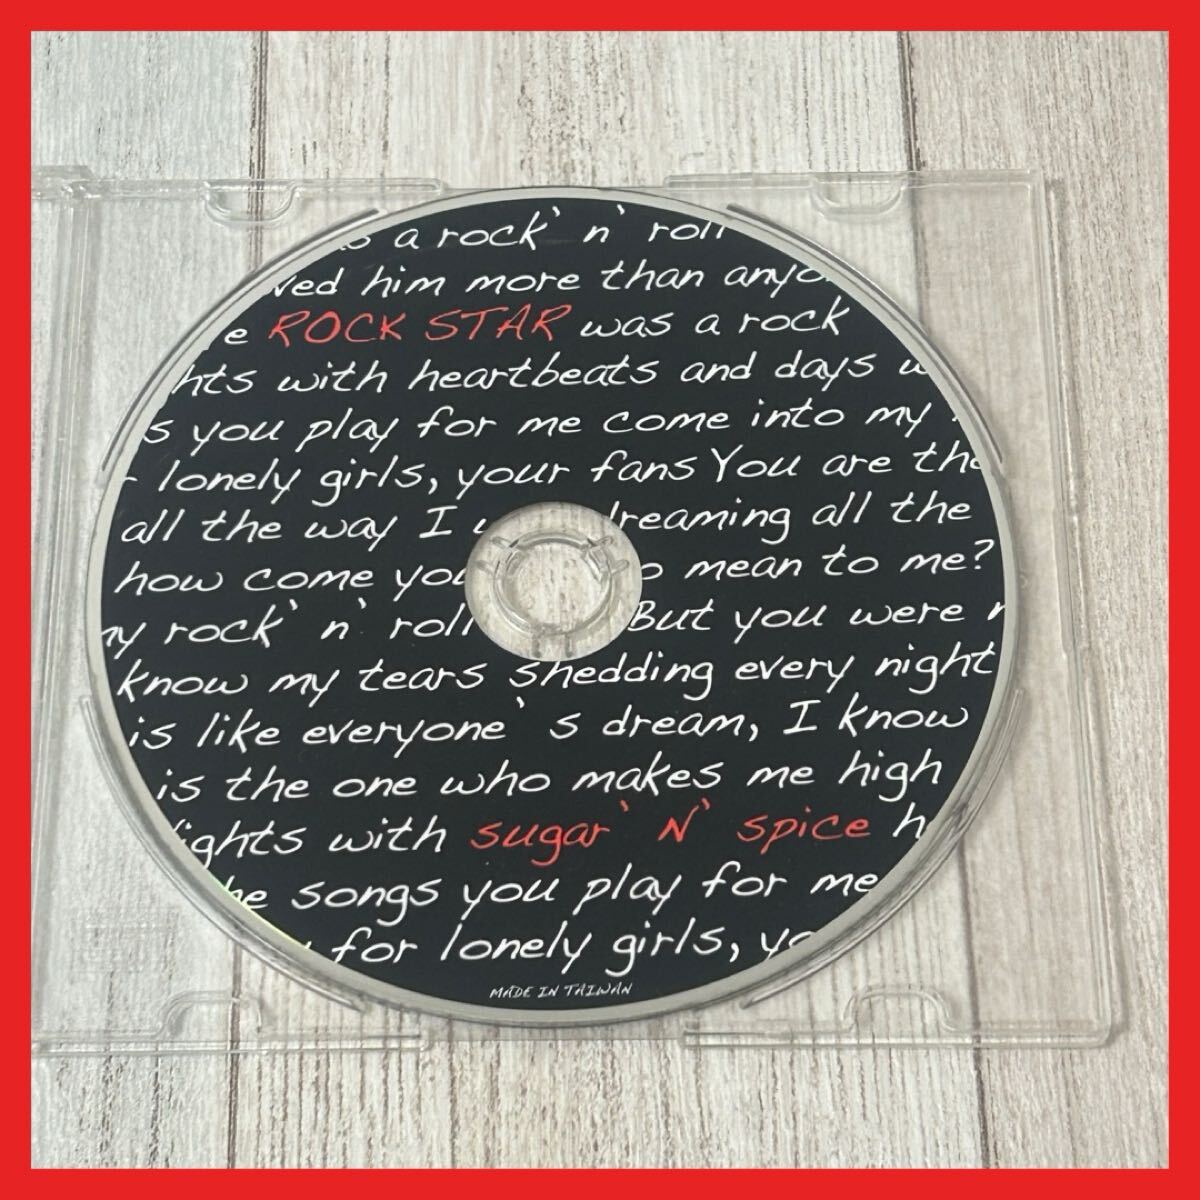 a rock' n' roll
him more than
ROCK STAR was a rock
with heartbeats and days
you play for me come into my
lonely girls, your fans You are the
all the way I dreaming all the
how come you mean to me?
rock' n' roll But you were
know my tears shedding every night
is like everyone's dream, I know
is the one who makes me high
with sugar' N' spice
songs you play for me
for lonely girls,
MADE IN TAIWAN